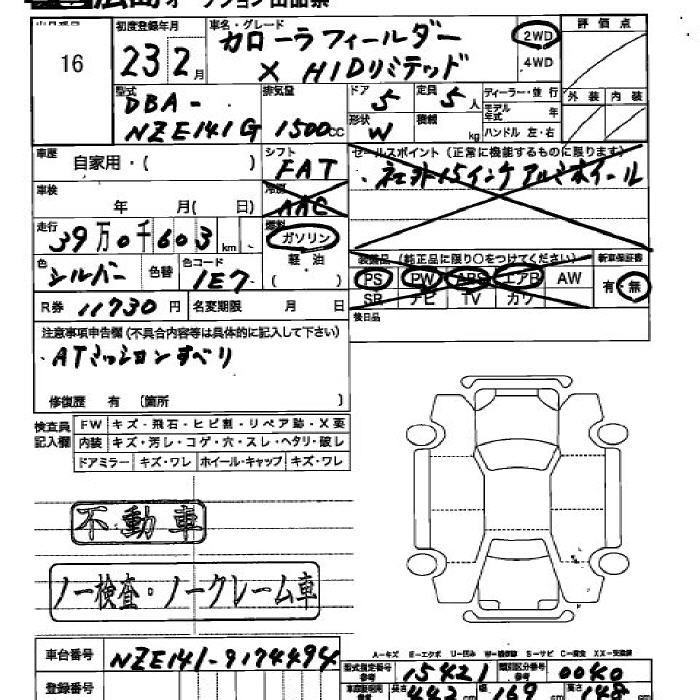 広島オークション出品票
16
初度登録年月
23 2月
車名・グレード
カローラフィールダー
X HIDリミテッド
2WD
4WD
評価点
外装 内装
型式
DBA-
NZE141G
排気量
1500cc
ドア 5
定員 5人
形状 W
積載 kg
ディーラー・並行
モデル年式 年
ハンドル 左・右
車歴
自家用・( )
シフト
FAT
セールスポイント(正常に機能するものに限ります)
・社外15インチアルミホイール
車検
年 月( 日)
冷房
AAC
走行
39万0千603km
燃料
ガソリン
軽油
( )
色
シルバー
色替
色コード
1E7
装備品(純正品に限り○をつけてください)
PS PW ABS エアB AW
SR ナビ TV カワ
新車保証書
有・無
R券 11730円
名変期限 月 日
後日品
注意事項申告欄(不具合内容等は具体的に記入して下さい)
・ATミッションすべり
修復歴 有(箇所 )
検査員記入欄
FW キズ・飛石・ヒビ割・リペア跡・X要
内装 キズ・汚レ・コゲ・穴・スレ・ヘタリ・破レ
ドアミラー キズ・ワレ ホイール・キャップ キズ・ワレ
不動車
ノー検査・ノークレーム車
A-キズ E-エクボ U-凹み W-補修跡 S-サビ C-腐食 XX-交換済
車台番号
NZE141-9174494
型式指定番号参考
15421
類別区分番号参考
0040
登録番号
長さ 442cm
幅 169cm
高さ 148cm